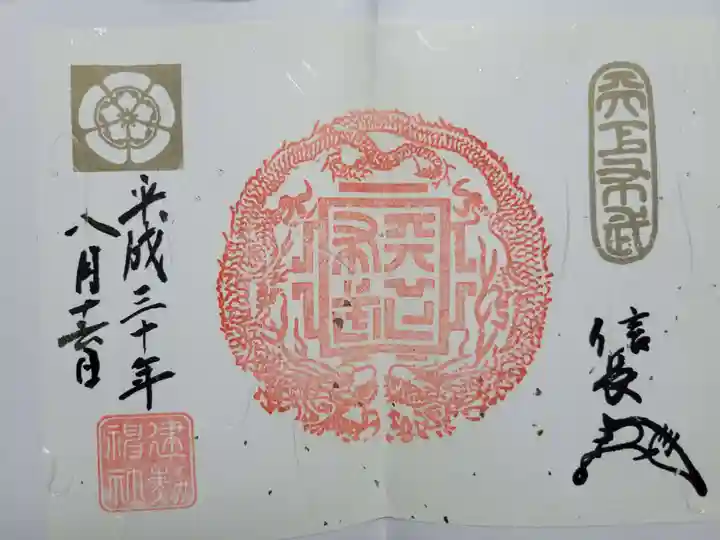 天下布武
信長
天下
布武
平成三十年
八月十六日
建勲
神社